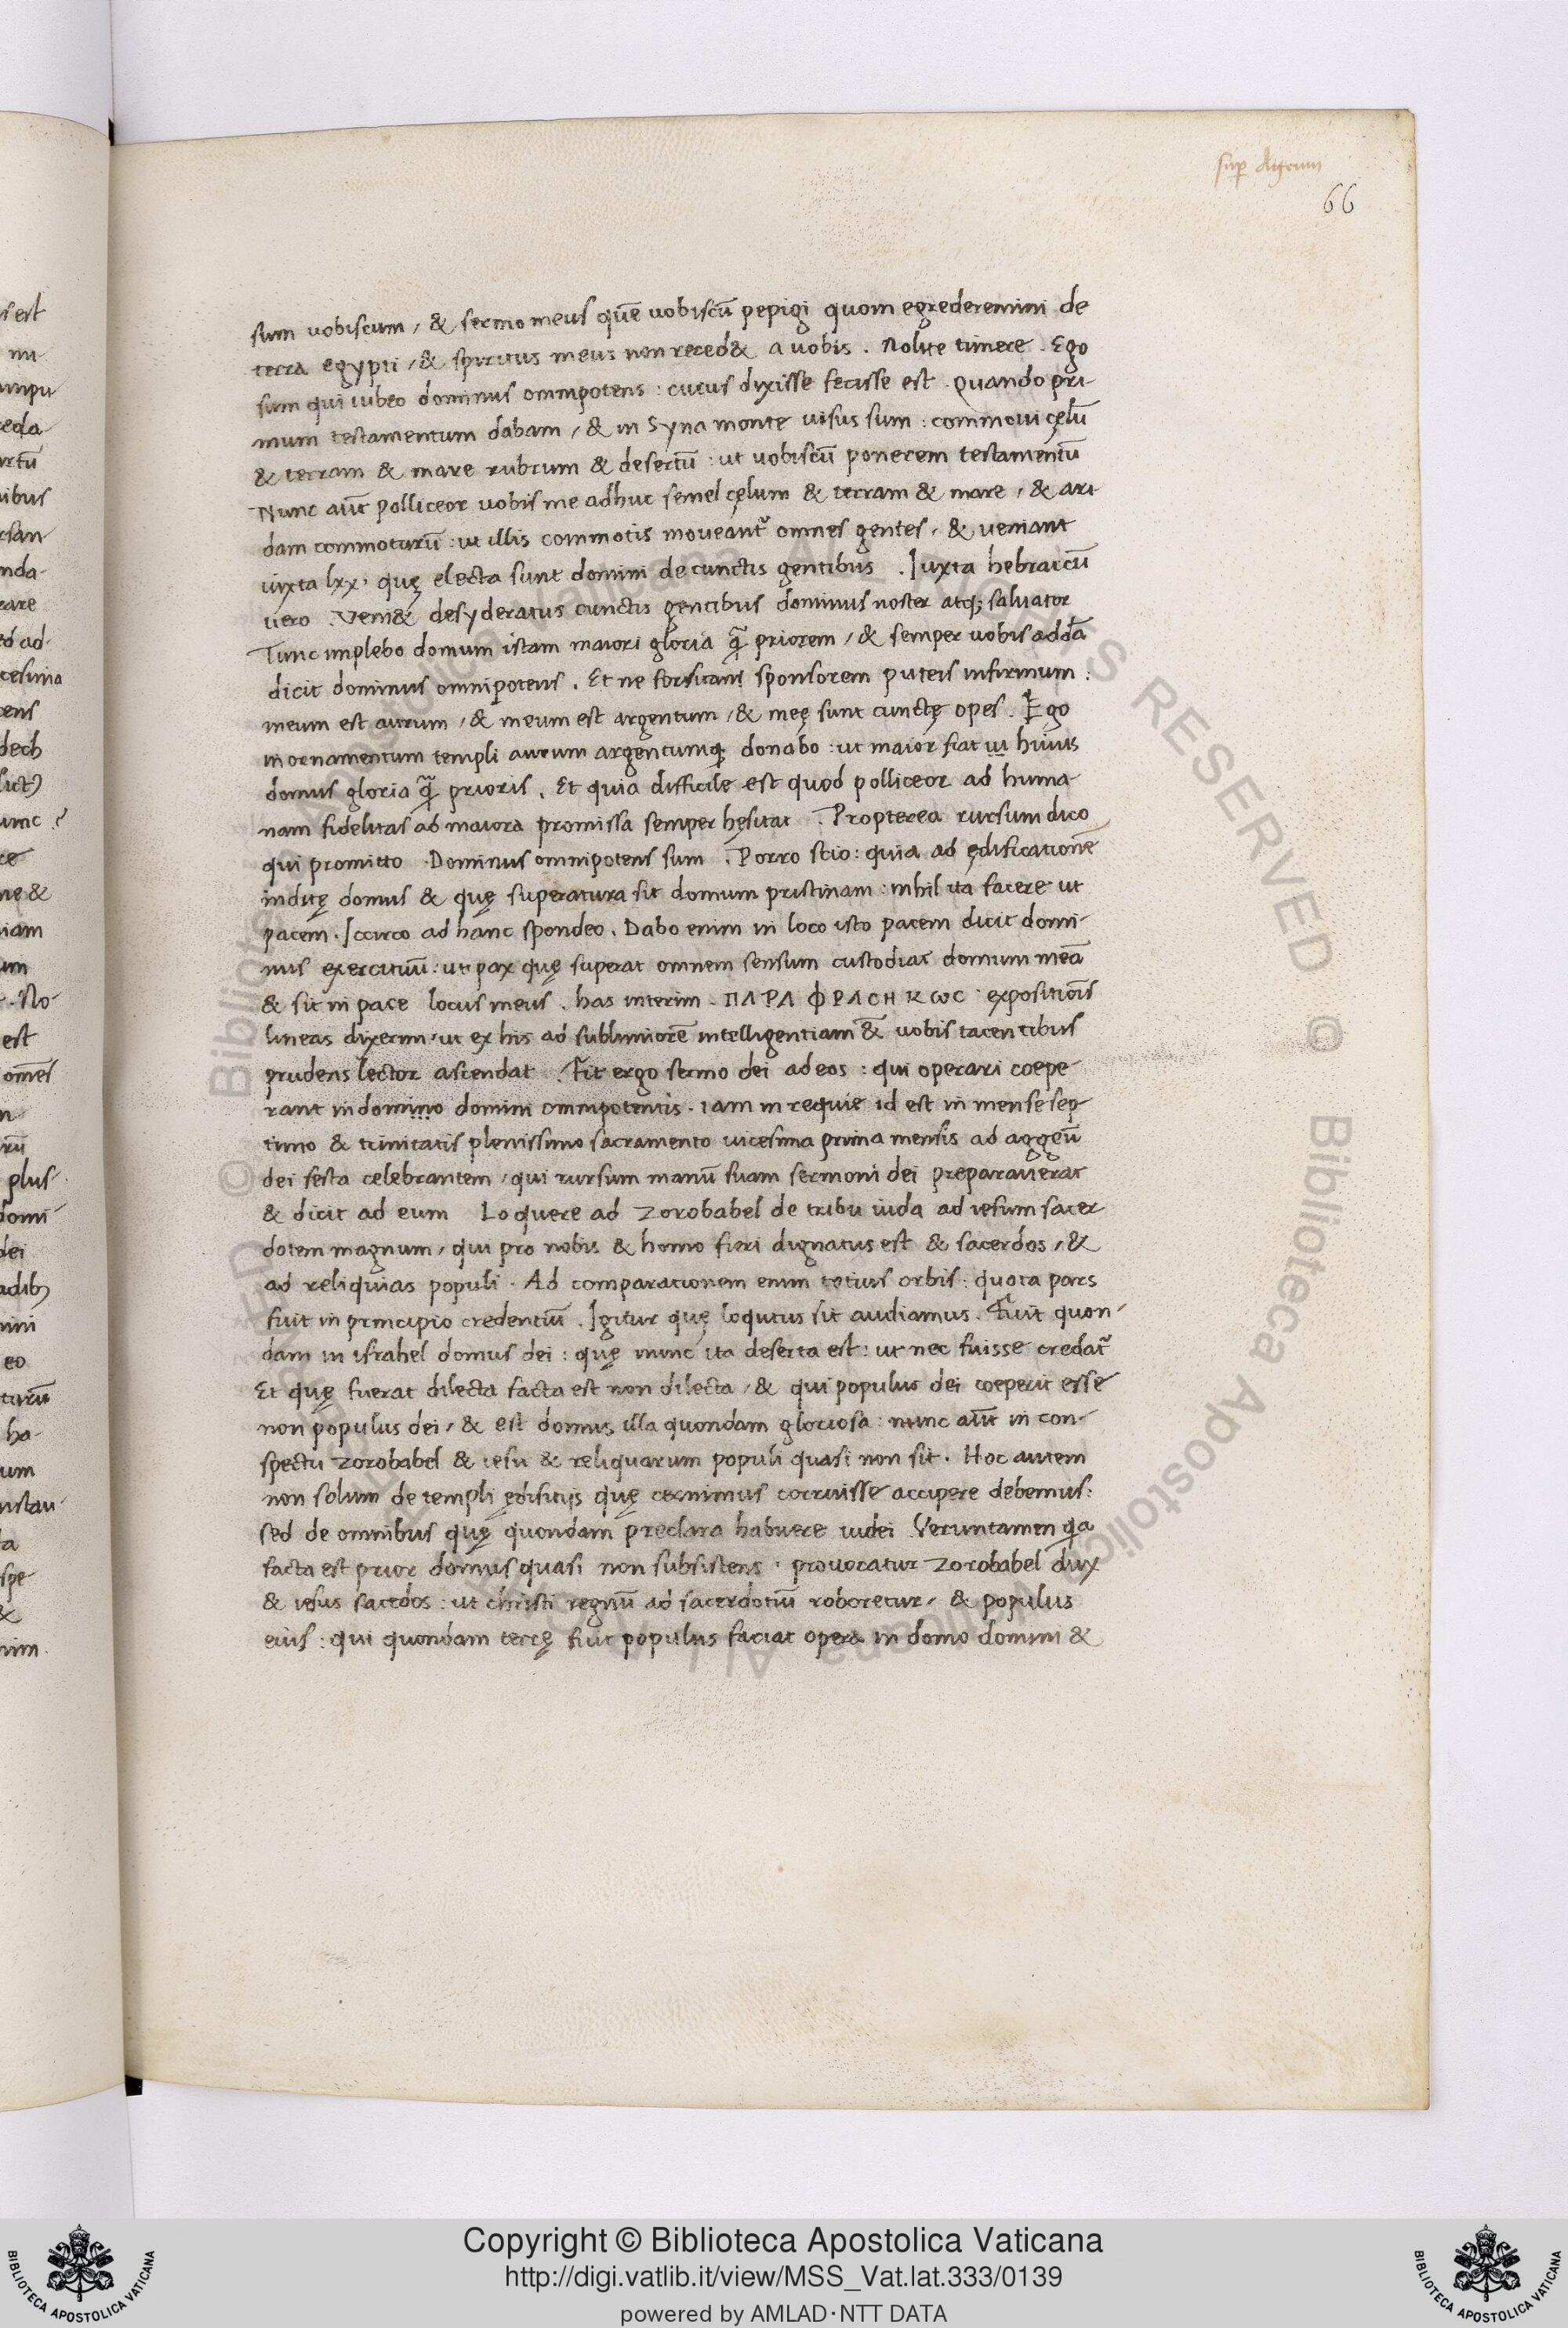 sup Aggeum
66
sum uobiscum, & sermo meus quē uobiscū pepigi quom egrederemini de
terra egypti, & spiritus meus non reced& a uobis. Nolite timere. Ego
sum qui iubeo dominus omnipotens: cuius dixisse fecisse est. Quando pri-
mum testamentum dabam, & in Syna monte uisus sum: commoui cęlū
& terram & mare rubrum & desertū: ut uobiscū ponerem testamentū
Nunc aūt polliceor uobis me adhuc semel cęlum & terram & mare, & ari
dam commoturū: ut illis commotis moueant᷑ omnes gentes, & ueniant
iuxta lxx, quę electa sunt domini de cunctis gentibus. Iuxta hebraicū
uero. Veni& desyderatus cunctis gentibus dominus noster atq; saluator
Tunc implebo domum istam maiori gloria q̄ priorem, & semper uobis addā
dicit dominus omnipotens. Et ne forsitans sponsorem puteis infirmum:
meum est aurum, & meum est argentum, & meę sunt cunctę opes. Ego
in ornamentum templi aurum argentumq; donabo: ut maior fiat ui huius
domus gloria q̄ prioris. Et quia difficile est quod polliceor ad huma
nam fidelitas ad maiora promissa semper hęsitat. Propterea rursum dico
qui promitto. Dominus omnipotens sum. Porro scio: quia ad ędificationē
inditę domus & quę superatura sit domum pristinam: nihil ita facere ut
pacem. Iccirco ad hanc spondeo. Dabo enim in loco isto pacem dicit domi-
nus exercituū: ut pax quę superat omnem sensum custodiat domum meā
& sit in pace locus meus. has interim. ΠΑΡΑ ΦΡΑCΗΚωC expositiōis
lineas dixerim, ut ex his ad sublimiorē intelligentiam &̄ uobis tacentibus
prudens lector ascendat. Fit ergo sermo dei ad eos: qui operari coepe-
rant in domino domini omnipotentis. iam in requie id est in mense sep-
timo & trinitatis plenissimo sacramento uicesima prima mensis ad aggeū
dei festa celebrantem, qui rursum manū suam sermoni dei preparauerat
& dicit ad eum Loquere ad Zorobabel de tribu iuda ad iesum sacer
dotem magnum, qui pro nobis & homo fieri dignatus est & sacerdos, &
ad reliquias populi. Ad comparationem enim totius orbis: quota pars
fuit in principio credentiū. Igitur quę loqutus sit audiamus. Fuit quon-
dam in israhel domus dei: quę nunc ita deserta est: ut nec fuisse credat᷑
Et quę fuerat dilecta facta est non dilecta, & qui populus dei coeperit esse
non populus dei, & est domus illa quondam gloriosa: nunc aūt in con-
spectu zorobabel & iesu & reliquarum populi quasi non sit. Hoc autem
non solum de templi ędifitijs quę cernimus corruisse accipere debemus:
sed de omnibus quę quondam preclara habuere iudei. Veruntamen q̄a
facta est prior domus quasi non subsistens. prouocatur Zorobabel dux
& iesus sacedos: ut christi regnū ad sacerdotiū roboretur, & populus
eius: qui quondam terrę fuit populus faciat opera in domo domini &
Copyright © Biblioteca Apostolica Vaticana
http://digi.vatlib.it/view/MSS_Vat.lat.333/0139
powered by AMLAD·NTT DATA